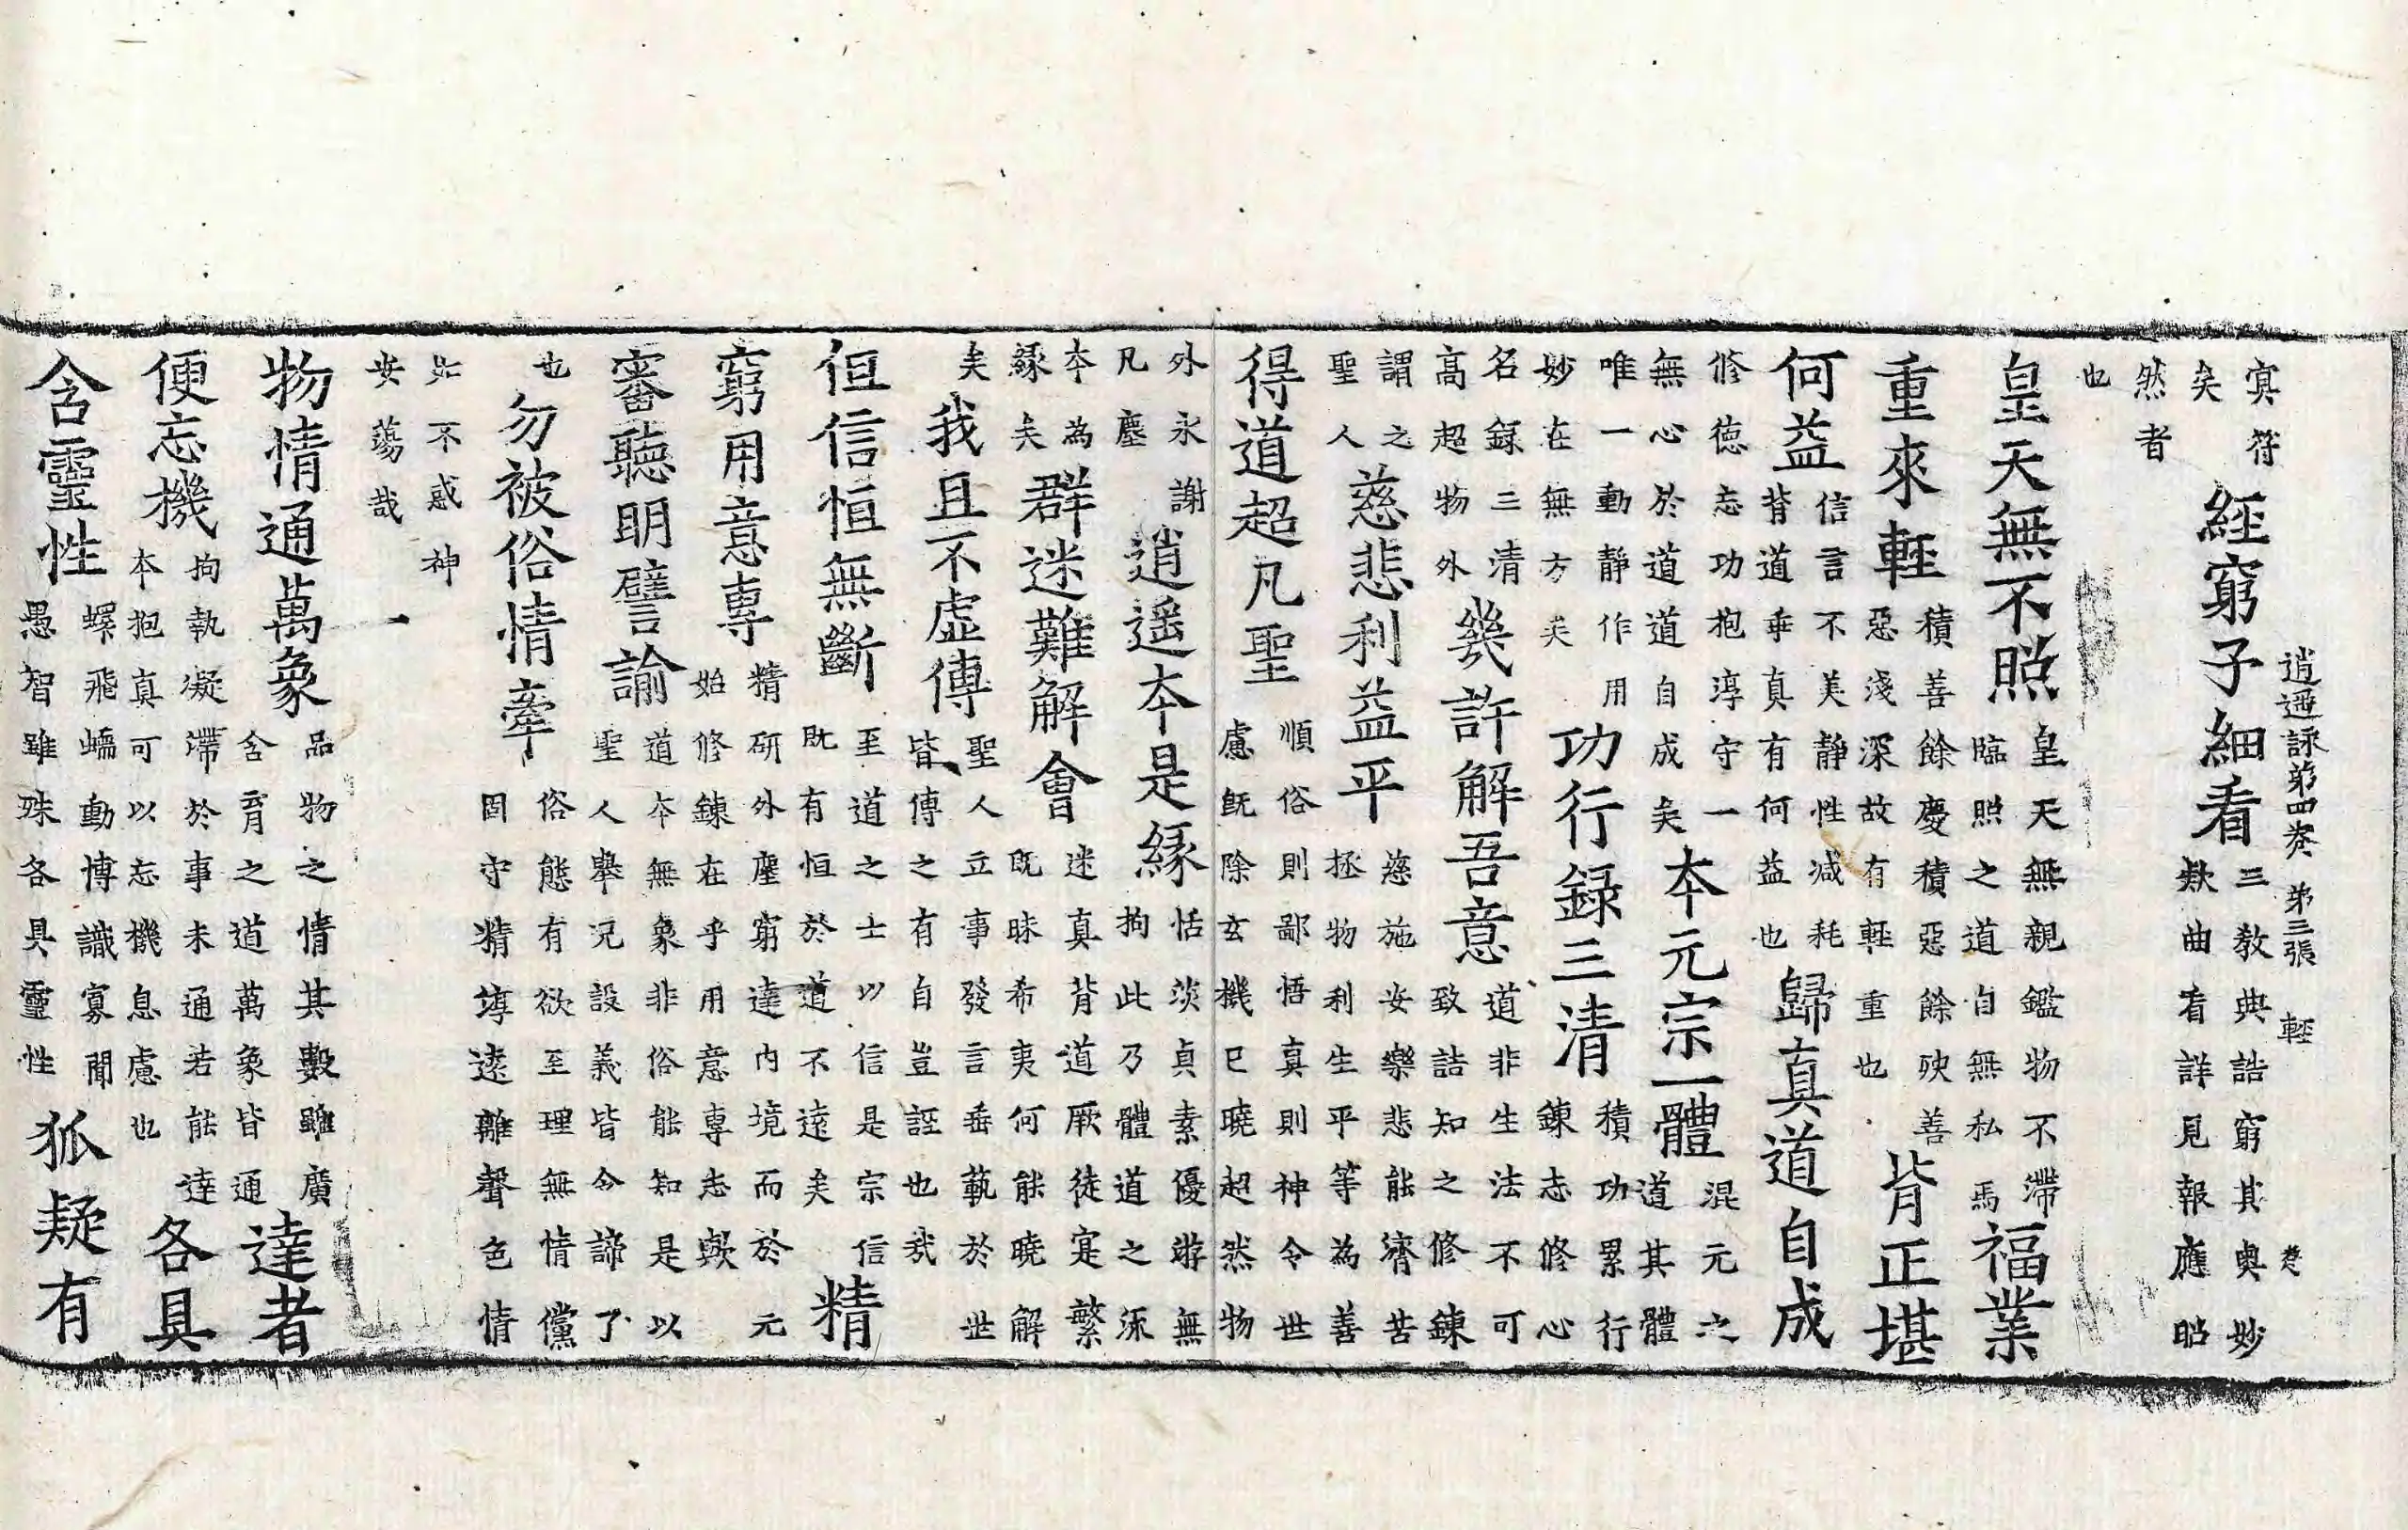 逍遙詠第四卷 第三張 輕
冥符
矣
經窮子細看
三教典誥窮其奧妙
欵曲看詳見報應昭
然者
也
皇天無不照
皇天無親鑑物不滯
臨照之道自無私焉
福業
重來輕
積善餘慶積惡餘殃善
惡淺深故有輕重也
背正堪
何益
信言不美靜性減耗
背道垂真有何益也
歸真道自成
修德忘功抱淳守一
無心於道道自成矣
本元宗一體
混元之
道其體
唯一動靜作用
妙在無方矣
功行録三清
積功累行
鍊志修心
名録三清
高超物外
幾許解吾意
道非生法不可
致詰知之修鍊
謂之
聖人
慈悲利益平
慈施安樂悲能濟苦
拯物利生平等為善
得道超凡聖
順俗則鄙悟真則神令世
慮既除玄機已曉超然物
外永謝
凡塵
逍遙本是緣
恬淡貞素優遊無
拘此乃體道之深
本為
緣矣
群迷難解會
迷真背道厥徒寔繁
既昧希夷何能曉解
矣
我且不虛傳
聖人立事發言垂範於世
皆傳之有自豈誑也哉
但信恒無斷
至道之士以信是宗信
既有恒於道不遠矣
精
窮用意專
精研外塵窮達內境而於元
始修鍊在乎用意專志歟
審聽明譬諭
道本無象非俗能知是以
聖人舉況設義皆令諦了
也
勿被俗情牽
俗態有欲至理無情儻
固守精淳遠離聲色情
不惑神
安蕩哉
一
物情通萬象
品物之情其數雖廣
含育之道萬象皆通
達者
便忘機
拘執凝滯於事未通若能達
本抱真可以忘機息慮也
各具
含靈性
蠉飛蠕動博識寡聞
愚智雖殊各具靈性
狐疑有